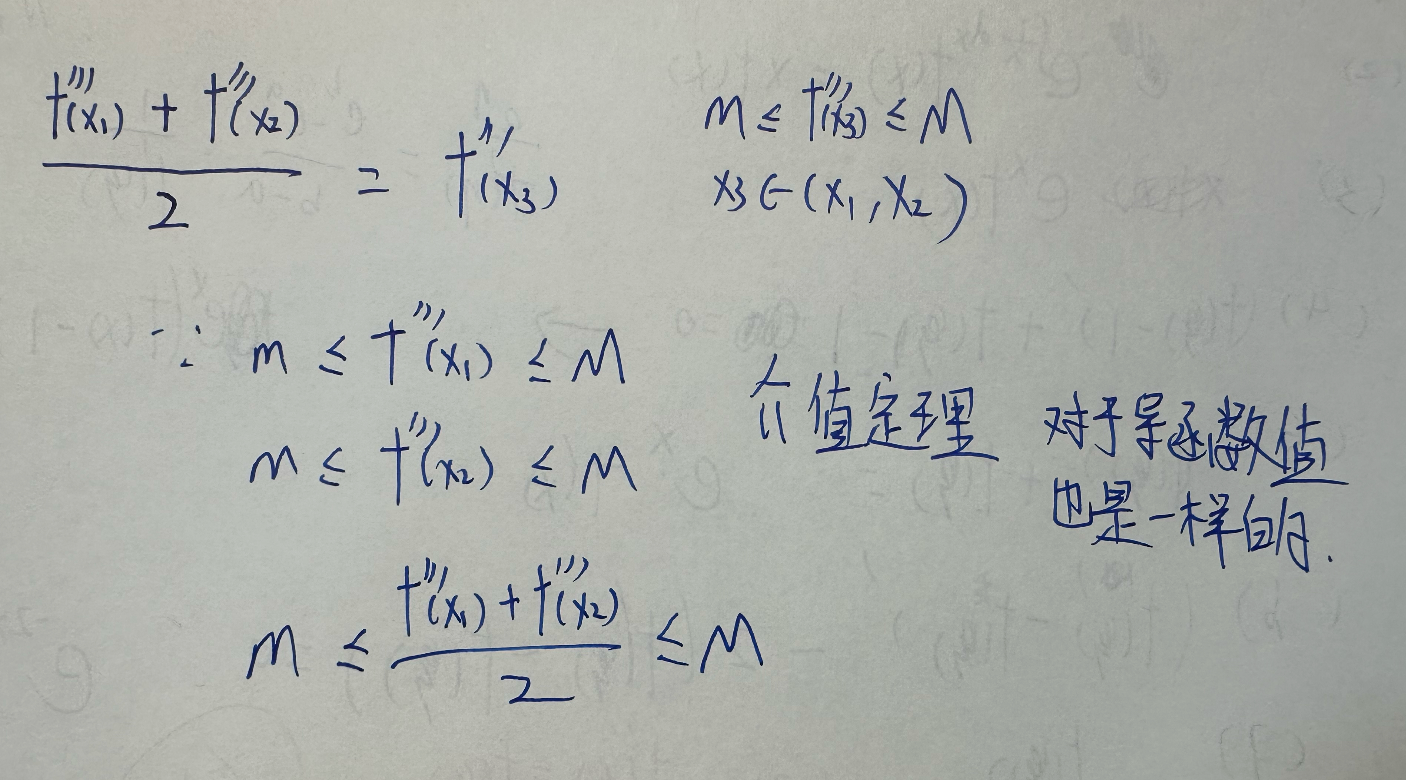 (f'''(x₁) + f'''(x₂))/2 = f'''(x₃)
m ≤ f'''(x₃) ≤ M
x₃ ∈ (x₁, x₂)
∵ m ≤ f'''(x₁) ≤ M
m ≤ f'''(x₂) ≤ M
m ≤ (f'''(x₁) + f'''(x₂))/2 ≤ M
介值定理
对于导函数值
也是一样的.